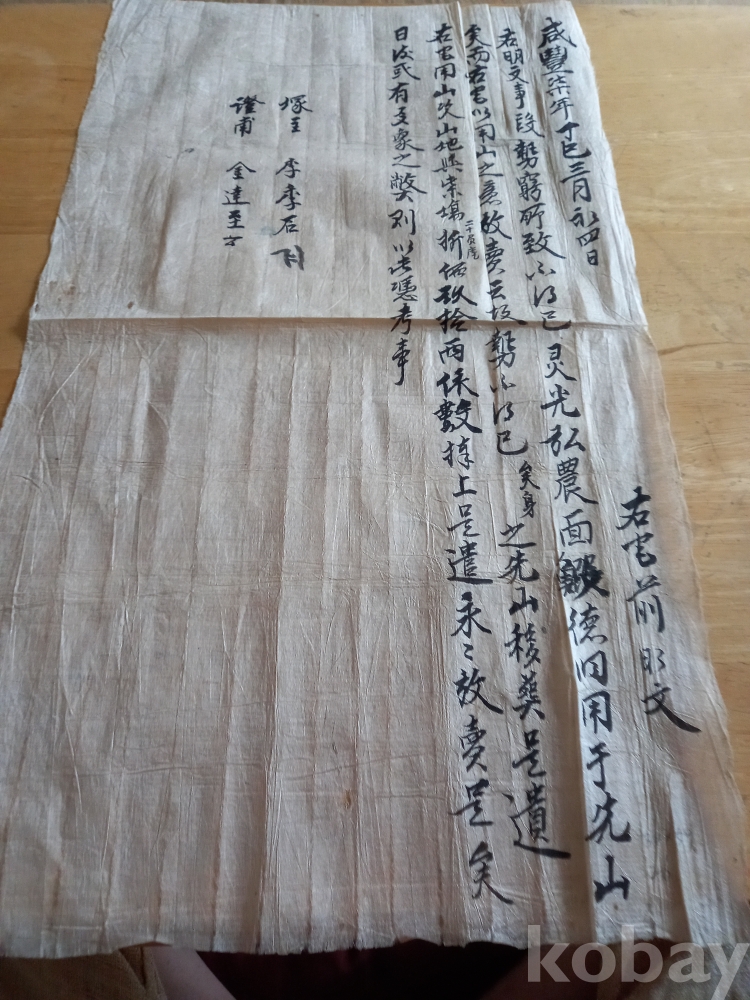 咸豐柒年丁巳三月初四日
右宅前明文
右明文事段勢窮所致不得已灵光弘農面德旧用于先山
矣而右宅以用山之意放賣云故勢不得已矣身之先山移葬是遣
右宅用山次山地與柴場二十负庛折価玖拾兩依數捧上是遣永〻放賣是矣
日後或有支象之弊則以此憑考事
塚主 李季石
證甫 金達
kobay